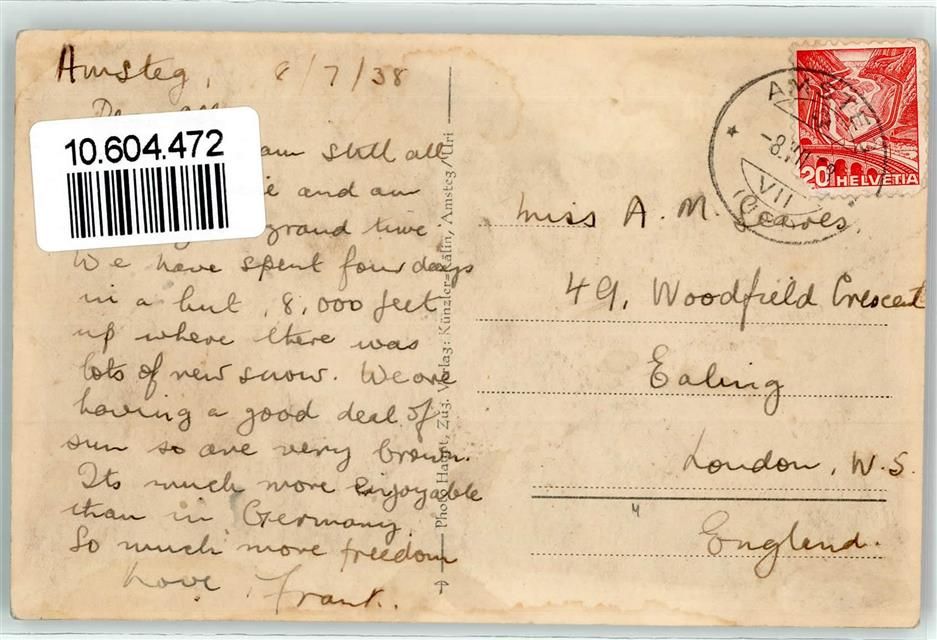 Amsteg, 8/7/38
10.604.472
am still all
and am
grand time
We have spent four days
in a hut, 8,000 feet
up where there was
lots of new snow. We are
having a good deal of
sun so are very brown.
Its much more enjoyable
than in Germany.
So much more freedom
Love, Frank.
Photo Haupt, Zug. Verlag: Künzler-Kälin, Amsteg/Uri
AMSTEG
-8.VII
VII
20 HELVETIA
Miss A. M. Seaves,
49, Woodfield Crescent
Ealing
London, W.5.
England.